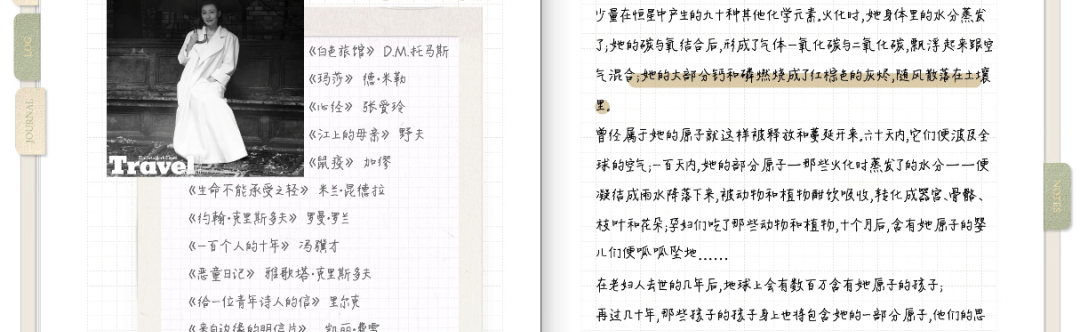 LOG
JOURNAL
Travel
《白色旅馆》 D.M.托马斯
《玛莎》 德·米勒
《心经》 张爱玲
《江上的母亲》 野夫
《鼠疫》 加缪
《生命不能承受之轻》 米兰·昆德拉
《约翰·克里斯多夫》 罗曼·罗兰
《一百个人的十年》 冯骥才
《恶童日记》 雅歌塔·克里斯多夫
《给一位青年诗人的信》 里尔克
《来自边缘的明信片》 凯丽·费雪
少量在恒星中产生的九十种其他化学元素.火化时,她身体里的水分蒸发
了;她的碳与氧结合后,形成了气体一氧化碳与二氧化碳,飘浮起来跟空
气混合;她的大部分钙和磷燃烧成了红棕色的灰烬,随风散落在土壤
里.
曾经属于她的原子就这样被释放和蔓延开来.六十天内,它们便波及全
球的空气;一百天内,她的部分原子一那些火化时蒸发了的水分一一便
凝结成雨水降落下来,被动物和植物酣饮吸收,转化成器官、骨骼、
枝叶和花朵;孕妇们吃了那些动物和植物,十个月后,含有她原子的婴
儿们便呱呱坠地……
在老妇人去世的几年后,地球上会有数百万含有她原子的孩子;
再过几十年,那些孩子的孩子身上也将包含她的一部分原子,他们的思
NOTES